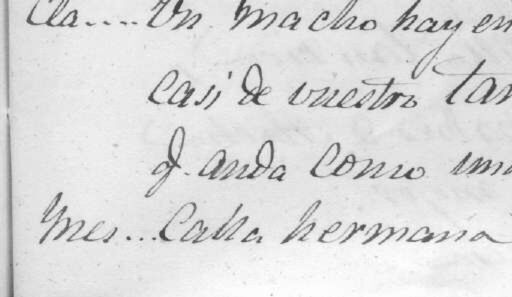 Cla.... Un macho hay en
casi de vuestro tam
q. anda como una
Ines... Calla hermana